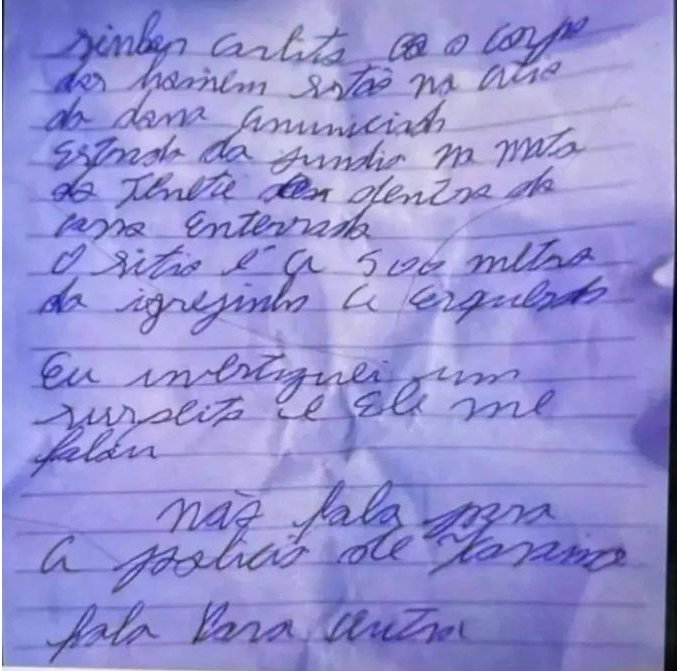 sinhor Carlito os o corpo
dos homem estão no citio
da dona anunciada
Estrada da jundia na mata
do Tenente dentro da
casa Enterrado
O sitio é a 500 metro
da igrejinha a esquerda
Eu investiguei um
suspeito e Ele me
falou
não fala para
a policia de
fala Para outra